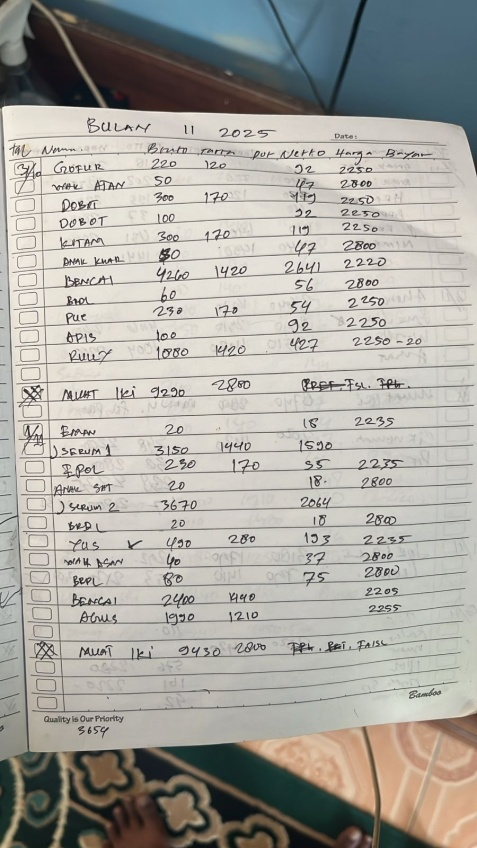 BULAN 11 2025
Date:
Tgl Nama Bruto Tarra pot Netto Harga Bayar
GOFUR 220 120 92 2250
WAK ATAN 50 47 2800
DOBOT 300 170 119 2250
DOBOT 100 92 2250
KITAM 300 170 119 2250
ANAK KHAR 50 47 2800
BENCAI 4260 1420 2641 2220
BROL 60 56 2800
PUE 230 170 54 2250
APIS 100 92 2250
RULLY 1880 1420 427 2250-20
MUAT IKI 9290 2800 FSL.
EMAN 20 18 2235
) SERUM 1 3150 1440 1590
IPOL 230 170 55 2235
ANAK SAT 20 18. 2800
) SERUM 2 3670 2064
BROL 20 18 2800
YUS ✓ 490 280 193 2235
WAK ASAN 40 37 2800
BROL 80 75 2800
BENCAI 2400 440 2205
AGUS 1990 1210 2255
MUAT IKI 9430 2800 FAISL
Bamboo
Quality is Our Priority
3654